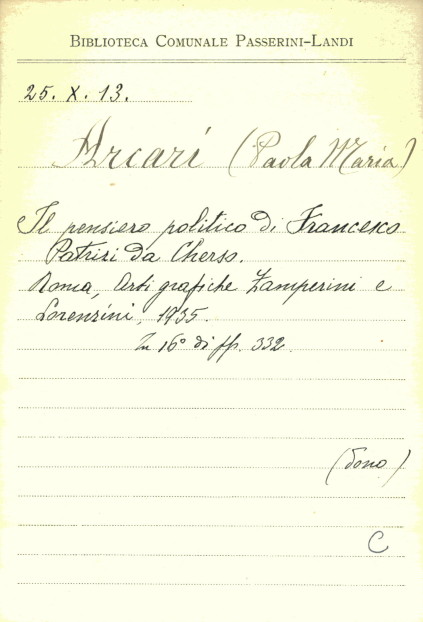 BIBLIOTECA COMUNALE PASSERINI-LANDI
25. X. 13.
Arcari (Paola Maria)
Il pensiero politico di Francesco
Patrizi da Cherso.
Roma, Arti grafiche Zamperini e
Lorenzini, 1935.
In 16° di pp. 332.
(dono)
C